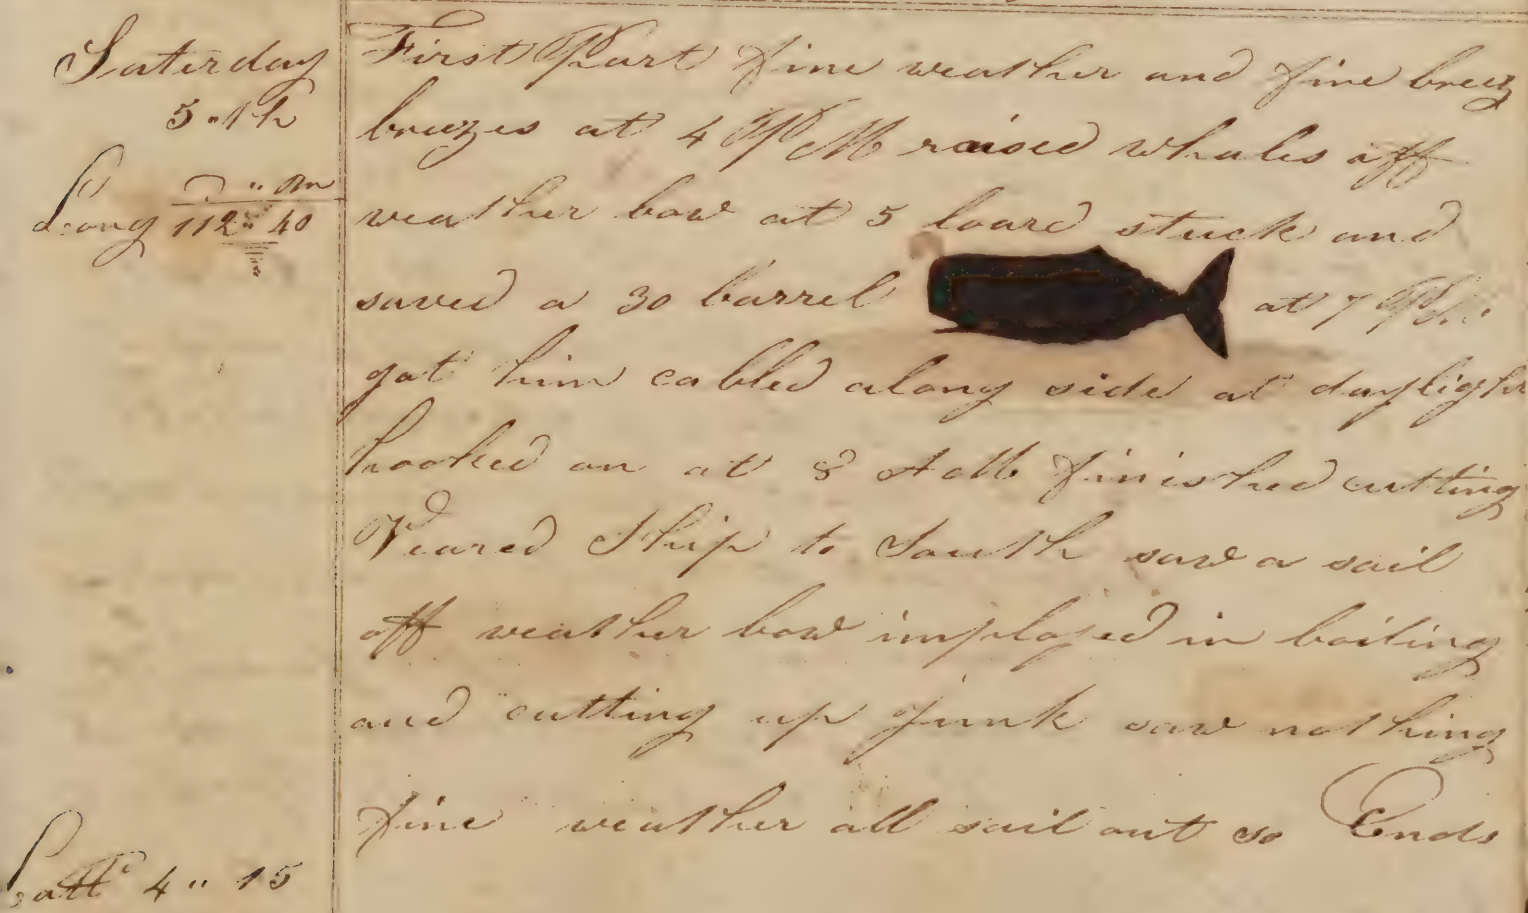 Saterday
5.th
Long 112" 40
Latt 4" 15
First Part fine weather and fine breez
breezes at 4 PM raised whales off
weather bow at 5 loard stuck and
saved a 30 barrel at 7 PM
got him cabled along side at dayligh
hooked on at 8 AM finished cutting
Veared Ship to South saw a sail
off weather bow imployed in boiling
and cutting up junk saw nothing
fine weather all sail out so Ends